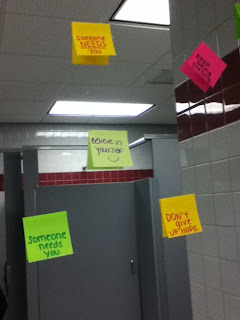 Someone
NEEDS
YOU
KEEP
Believe in
yourself
DON'T
give
UP HOPE.
Someone
needs
you.